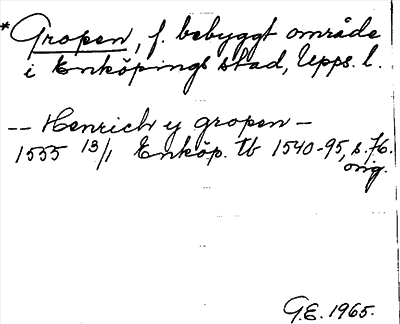 * Gropen, f. bebyggt område
i Enköpings stad, Upps. l.
-- Henrich y gropen -
1555 13/1 Enköp. tb 1540-95, s. 76.
orig.
G.E. 1965.